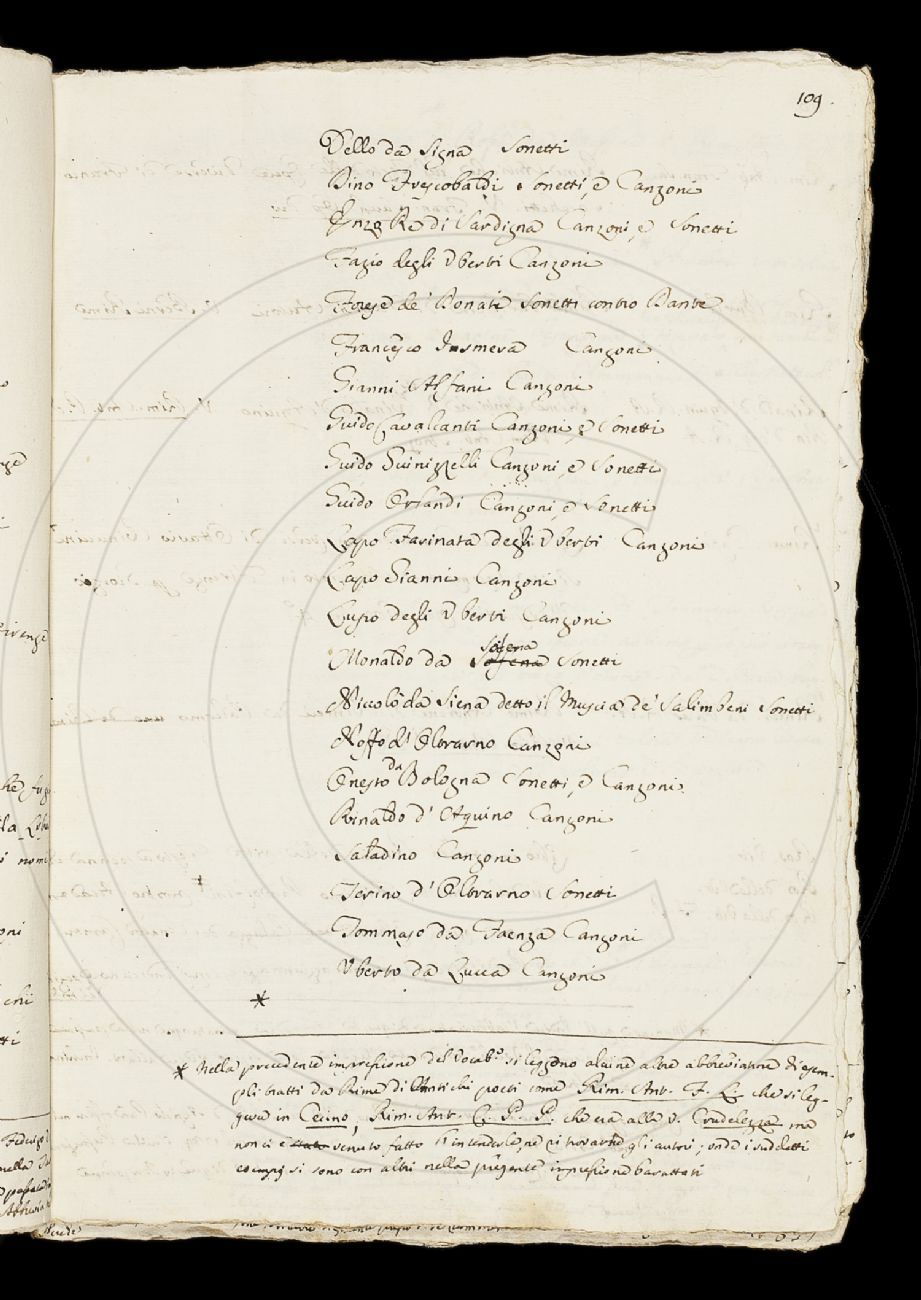 109.
Dello da Signa Sonetti
Dino Frescobaldi Sonetti, e Canzoni
Enzo Re di Sardigna Canzoni, e Sonetti
Fazio degli Uberti Canzoni
Forese de' Donati Sonetti contro Dante
Francesco Ismera Canzoni
Gianni Alfani Canzoni
Guido Cavalcanti Canzoni, e Sonetti
Guido Guinizzelli Canzoni, e Sonetti
Guido Orlandi Canzoni, e Sonetti
Lapo Farinata degli Uberti Canzoni
Lapo Gianni Canzoni
Lupo degli Uberti Canzoni
Monaldo da Sofena Sonetti
Niccolò da Siena detto il Muscia de' Salimbeni Sonetti
Noffo d' Oltrarno Canzoni
Onesto da Bologna Sonetti, e Canzoni
Rinaldo d' Aquino Canzoni
Saladino Canzoni
Terino d' Oltrarno Sonetti
Tommaso da Faenza Canzoni
Uberto da Lucca Canzoni
*
* Nella precedente impressione del Vocab.º si leggono alcune altre abbreviature di esem-
pli tratti da Rime di Antichi poeti come Rim. Ant. F. L. che si leg-
geva in Cecino, Rim. Ant. C. P. P. che era alla v. Crudelezza ma
non ci è venuto fatto d' intenderle, nè ci trovarne gli autori; onde i suddetti
esempj si sono con altri nella presente impressione barattati